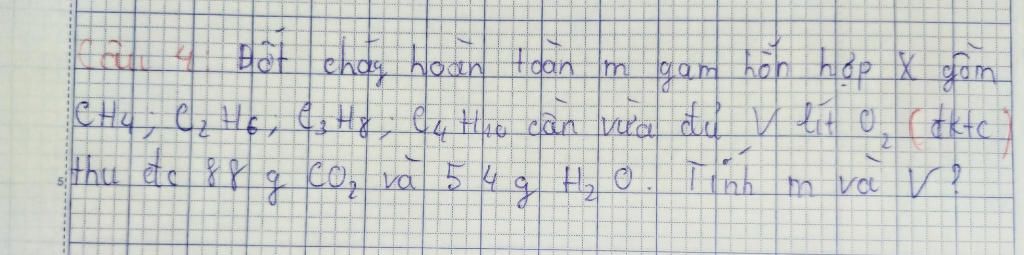 Câu 4: Đốt cháy hoàn toàn m gam hỗn hợp X gồm
CH4; C2H6; C3H8; C4H10 cần vừa đủ V lít O2 (đktc)
thu đc 88 g CO2 và 54 g H2O. Tính m và V?